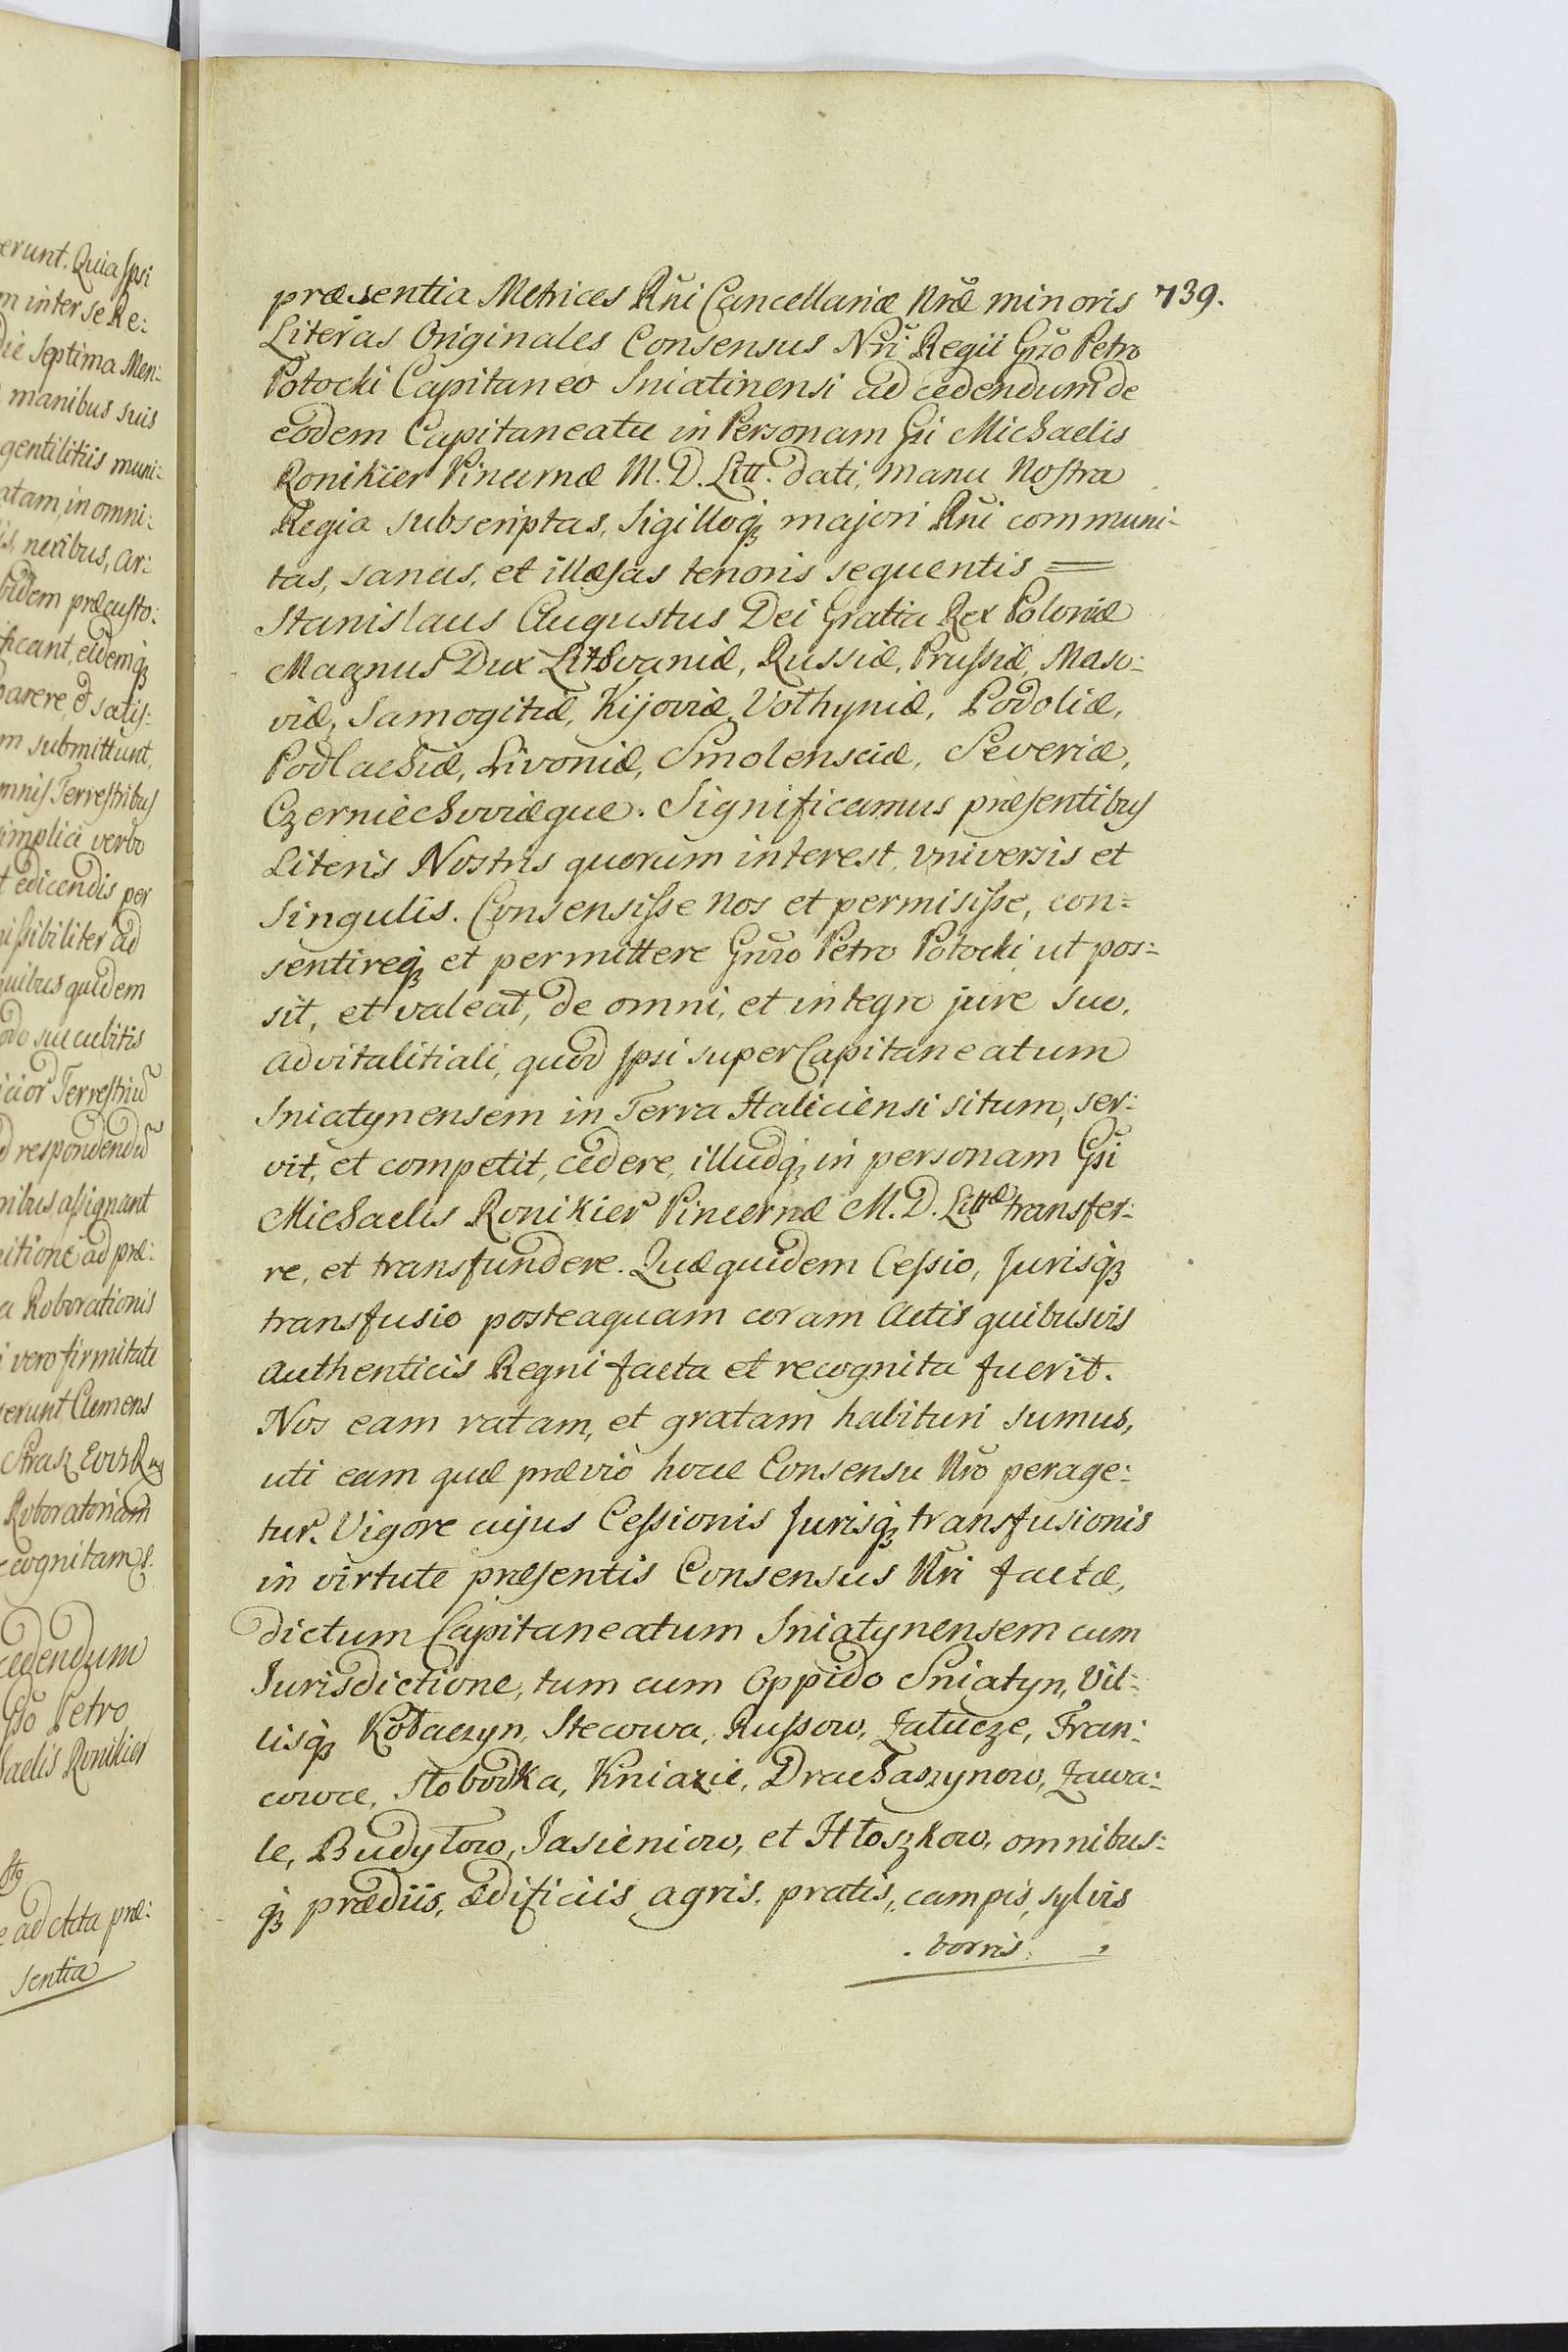 erunt. Quia Ipsi
m inter se Re:
Die Septima Men:
manibus suis
gentilitiis muni:
atam, in omni:
is, nexibus, ar:
bidem præcusto:
ficant, eidemq3
parere, et satis:
m submittunt,
mnis Terrestribus
simplici verbo
t edicendis per
issibiliter ad
quibus quidem
odo succubitis
icior Terrestriũ
d respondendũ
nibus assignant
itione ad præ:
a Roborationis
i vero firmitate
serunt Clemens
Roboratoriam
cognitam e.
cedendum
Gso Petro
haelis Ronikier
e ad Acta præ:
sentia
præsentia Metrices Rñi Cancellariæ Nræ minoris 739.
Literas Originales Consensus Nri Regii Gnso Petro
Potocki Capitaneo Sniatinensi ad cedendum de
eodem Capitaneatu in Personam Gsi Michaelis
Ronikier Pincernæ M. D. Litt. dati, manu Nostra
Regia subscriptas, Sigilloq3 majori Rñi communi-
tas, sanas, et illæsas tenoris sequentis =
Stanislaus Augustus Dei Gratia Rex Poloniæ
Magnus Dux Lithvaniæ, Russiæ, Prussiæ, Maso:
viæ, Samogitiæ, Kijoviæ, Volhyniæ, Podoliæ,
Podlachiæ, Livoniæ, Smolensciæ, Severiæ,
Czerniechoviæque. Significamus præsentibus
Literis Nostris quorum interest, Vniversis et
Singulis. Consensisse Nos et permisisse, con=
sentireq3 et permittere Gnso Petro Potocki, ut pos:=
sit, et valeat, de omni, et integro jure suo,
advitalitiali, quod Ipsi super Capitaneatum
Sniatynensem in Terra Haliciensi situm, ser:
vit, et competit, cedere, illudq3 in personam Gsi
Michaelis Ronikier Pincernæ M. D. Littæ transfer:
re, et transfundere. Quæ quidem Cessio, Jurisq3
transfusio posteaquam coram Actis quibusvis
authenticis Regni facta et recognita fuerit.
Nos eam ratam, et gratam habituri sumus,
uti eam quæ prævio hocce Consensu Nro perage:
tur. Vigore cujus Cessionis Jurisq3 transfusionis
in virtute præsentis Consensus Nri factæ,
dictum Capitaneatum Sniatynensem cum
Jurisdictione, tum cum Oppido Sniatyn, Vil=
lisq3 Kołaczyn, Stecowa, Russow, Załucze, Tran:
cowce, Słobodka, Kniazie, Drachaszynow, Zawa:
le, Budyłow, Jasieniow, et Hłoszkow, omnibus:
q3 prædiis, ædificiis agris, pratis, campis, sylvis
borris